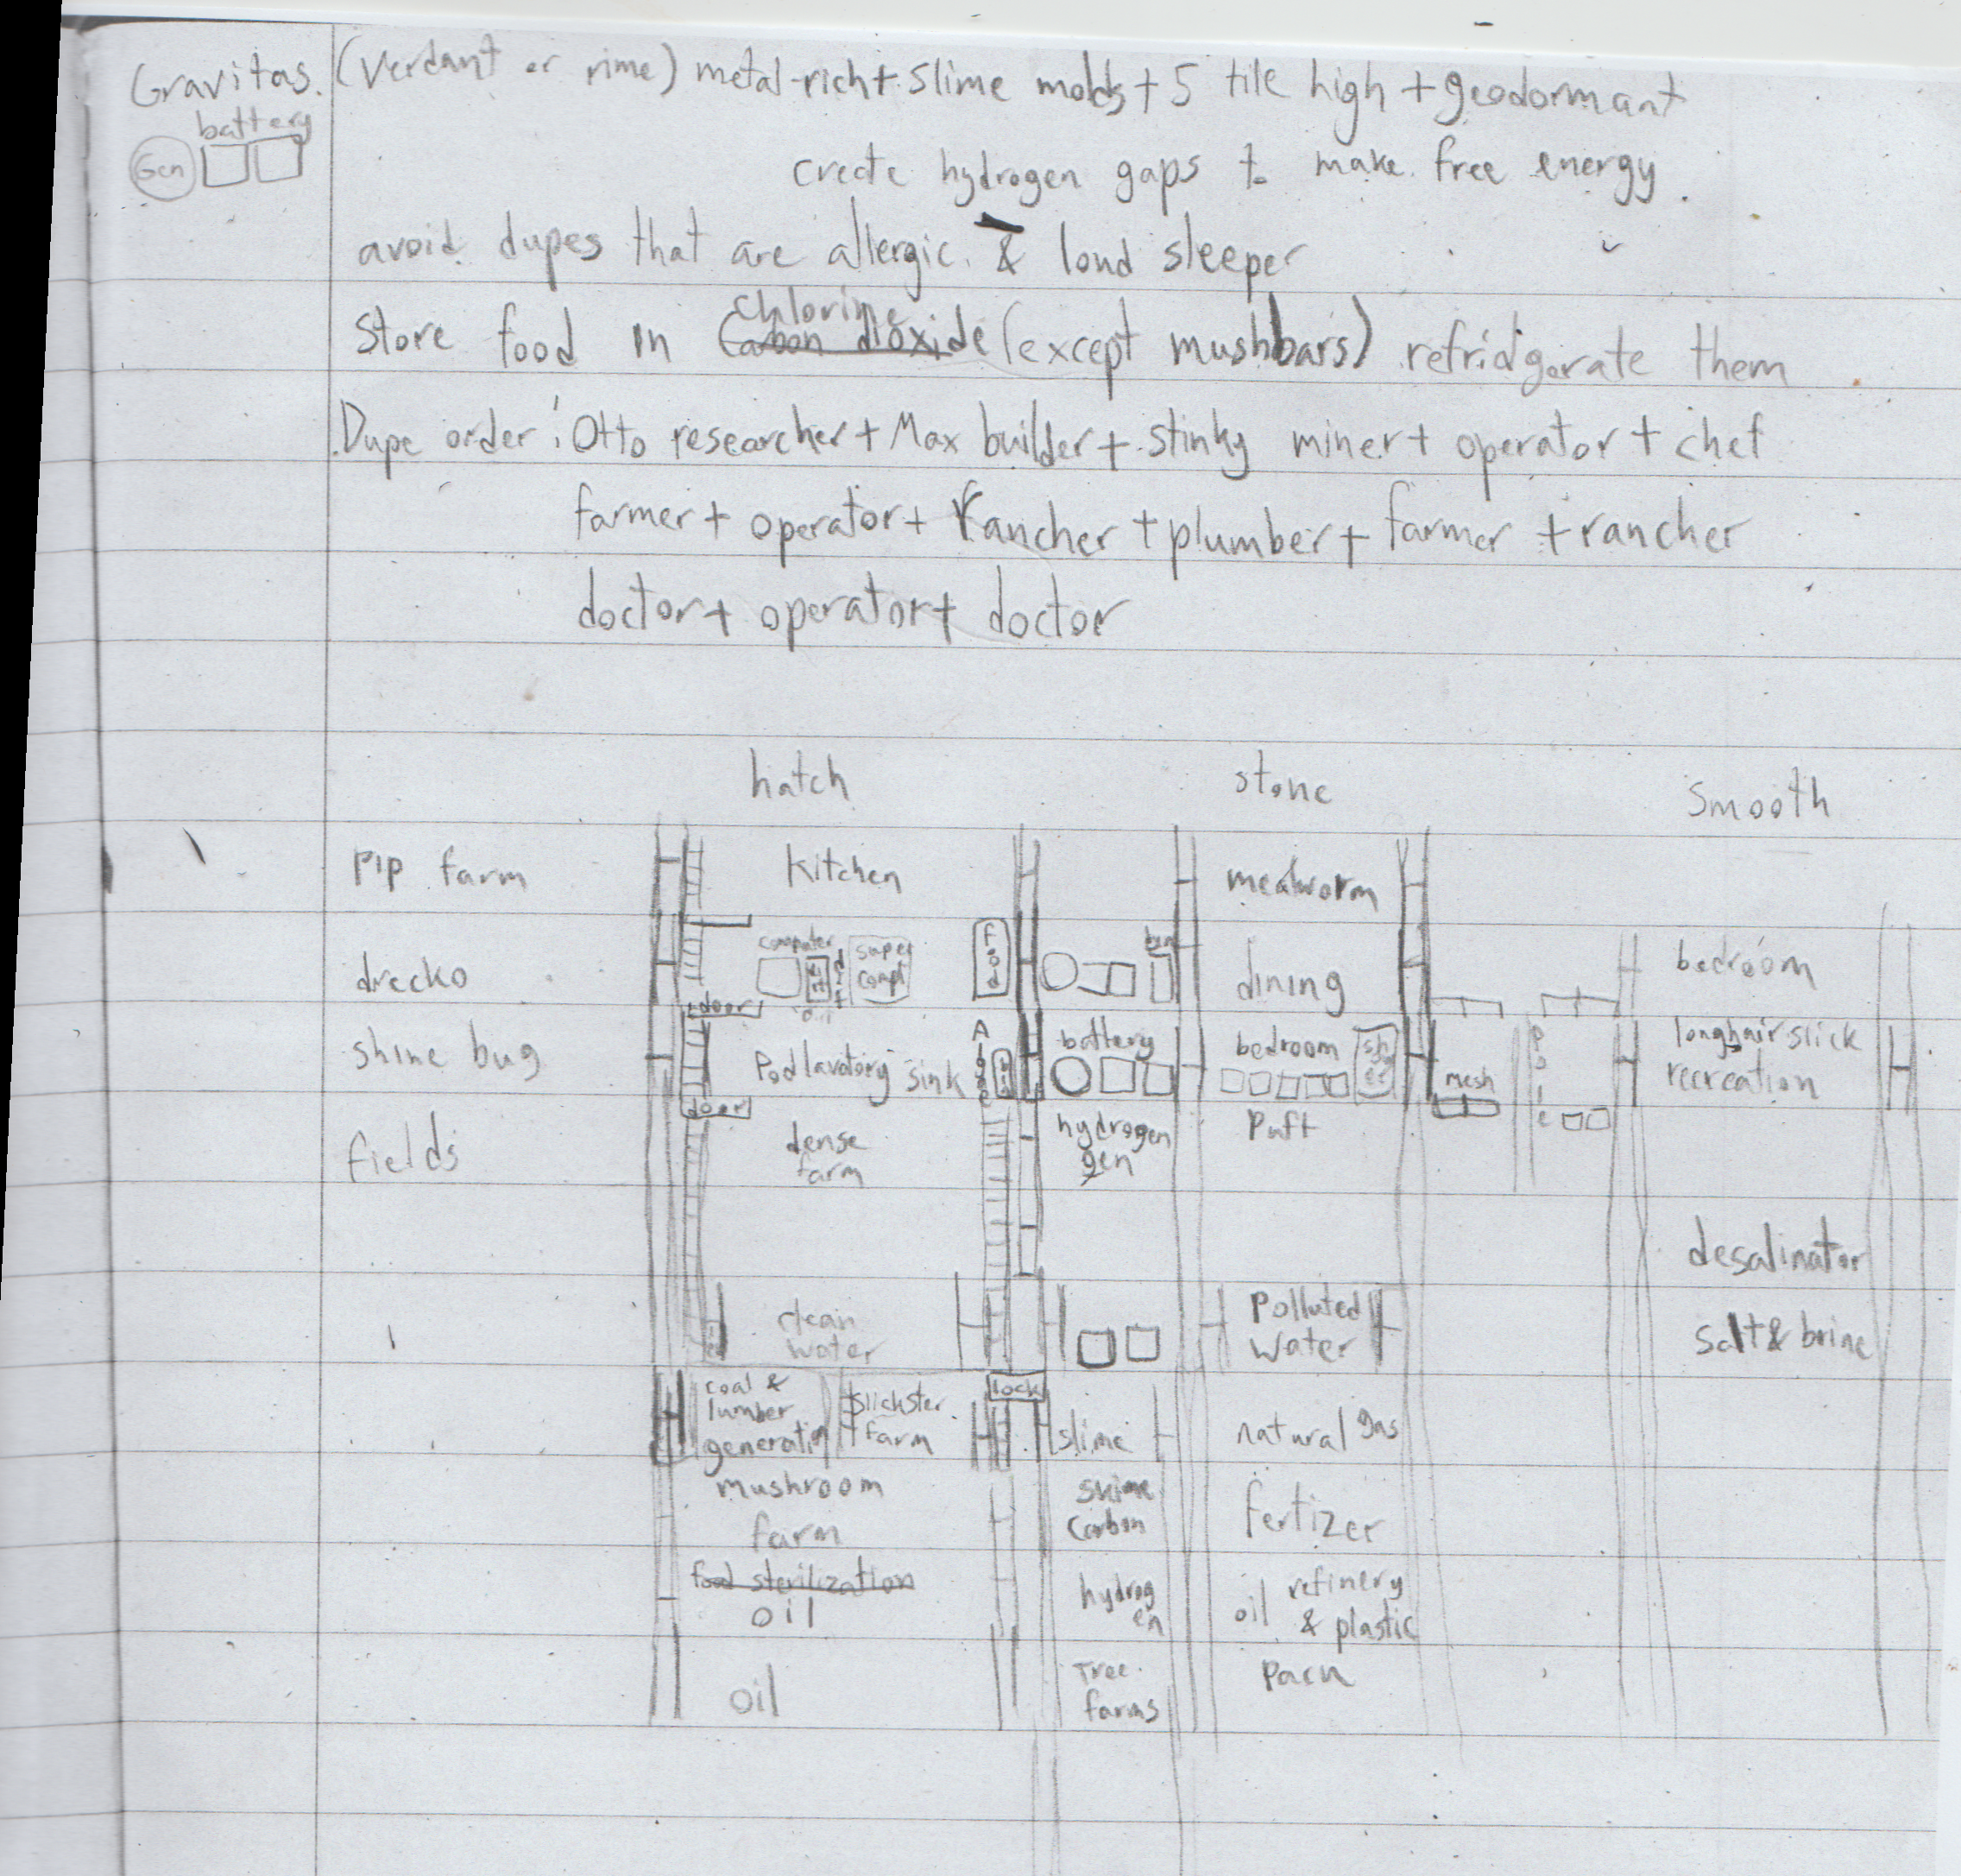 Gravitas. (Verdant or rime) metal-rich + slime molds + 5 tile high + geodormant
battery
Gen
create hydrogen gaps to make free energy.
avoid dupes that are allergic & loud sleeper
Chlorine
Store food in Carbon dioxide (except mushbars) refridgerate them
Dupe order: Otto researcher + Max builder + stinky miner + operator + chef
farmer + operator + rancher + plumber + farmer + rancher
doctor + operator + doctor
hatch stone smooth
Pip farm Kitchen mealworm
drecko computer super compt food dining bedroom
door
shine bug Pod lavatory sink battery bedroom mesh pole longhair slick recreation
door
fields dense farm hydrogen gen Puft
desalinator
clean water Polluted water salt & brine
coal & lumber generation slickster farm lock slime natural gas
mushroom farm carbon fertizer
food sterilization oil hydrogen oil refinery & plastic
oil Tree farms